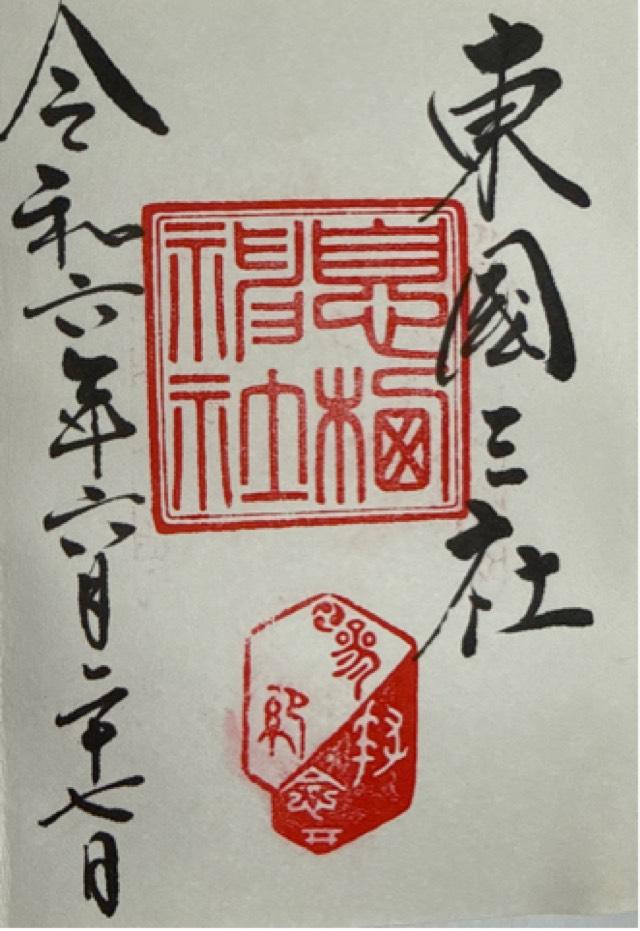 東國三社
息栖
神社
参拝
令和六年六月二十七日